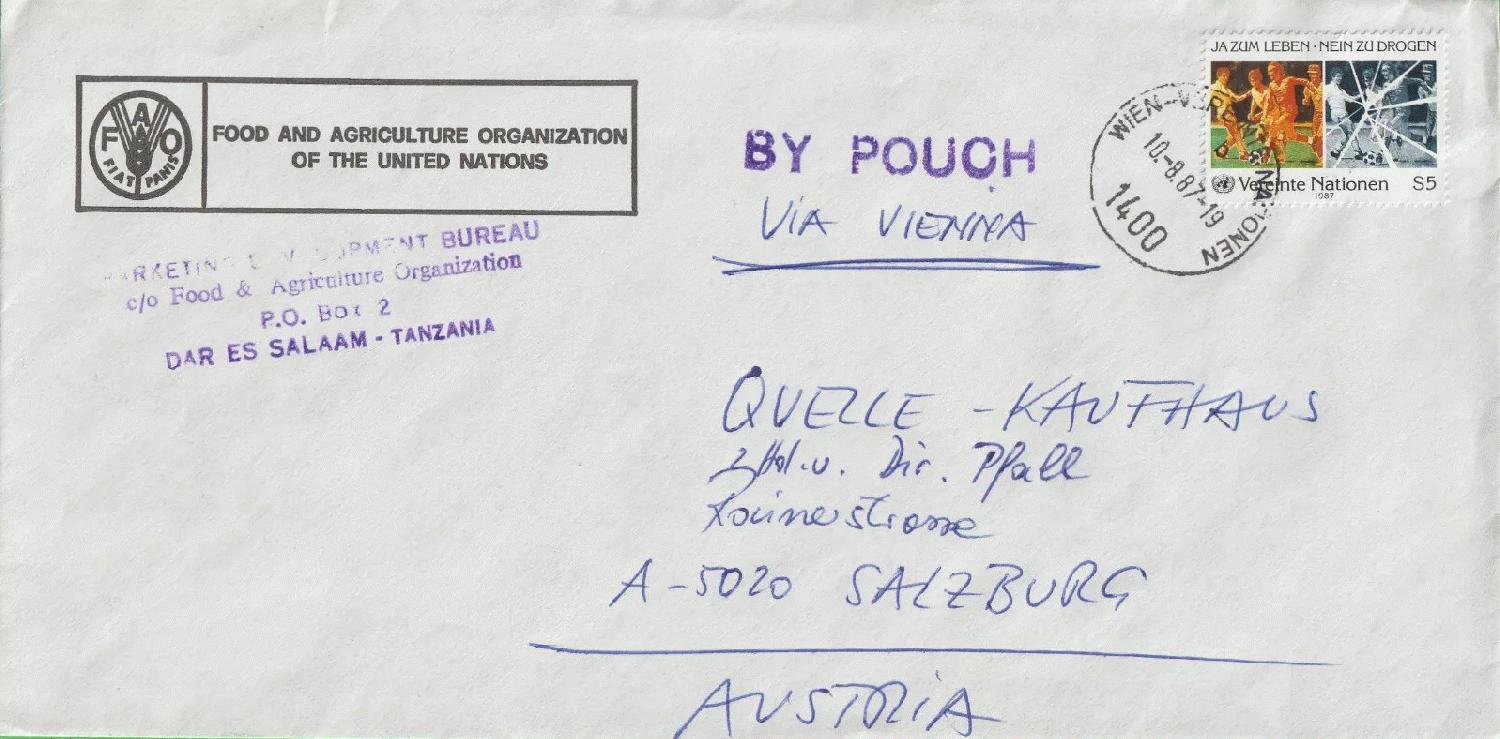 FAO
FIAT PANIS
FOOD AND AGRICULTURE ORGANIZATION
OF THE UNITED NATIONS
BUREAU
c/o Food & Agriculture Organization
P.O. Box 2
DAR ES SALAAM - TANZANIA
BY POUCH
VIA VIENNA
WIEN
NATIONEN
10.-8.87-19
1400
JA ZUM LEBEN · NEIN ZU DROGEN
Vereinte Nationen S5
1987
QUELLE - KAUFHAUS
Dir. Pfall
A-5020 SALZBURG
AUSTRIA